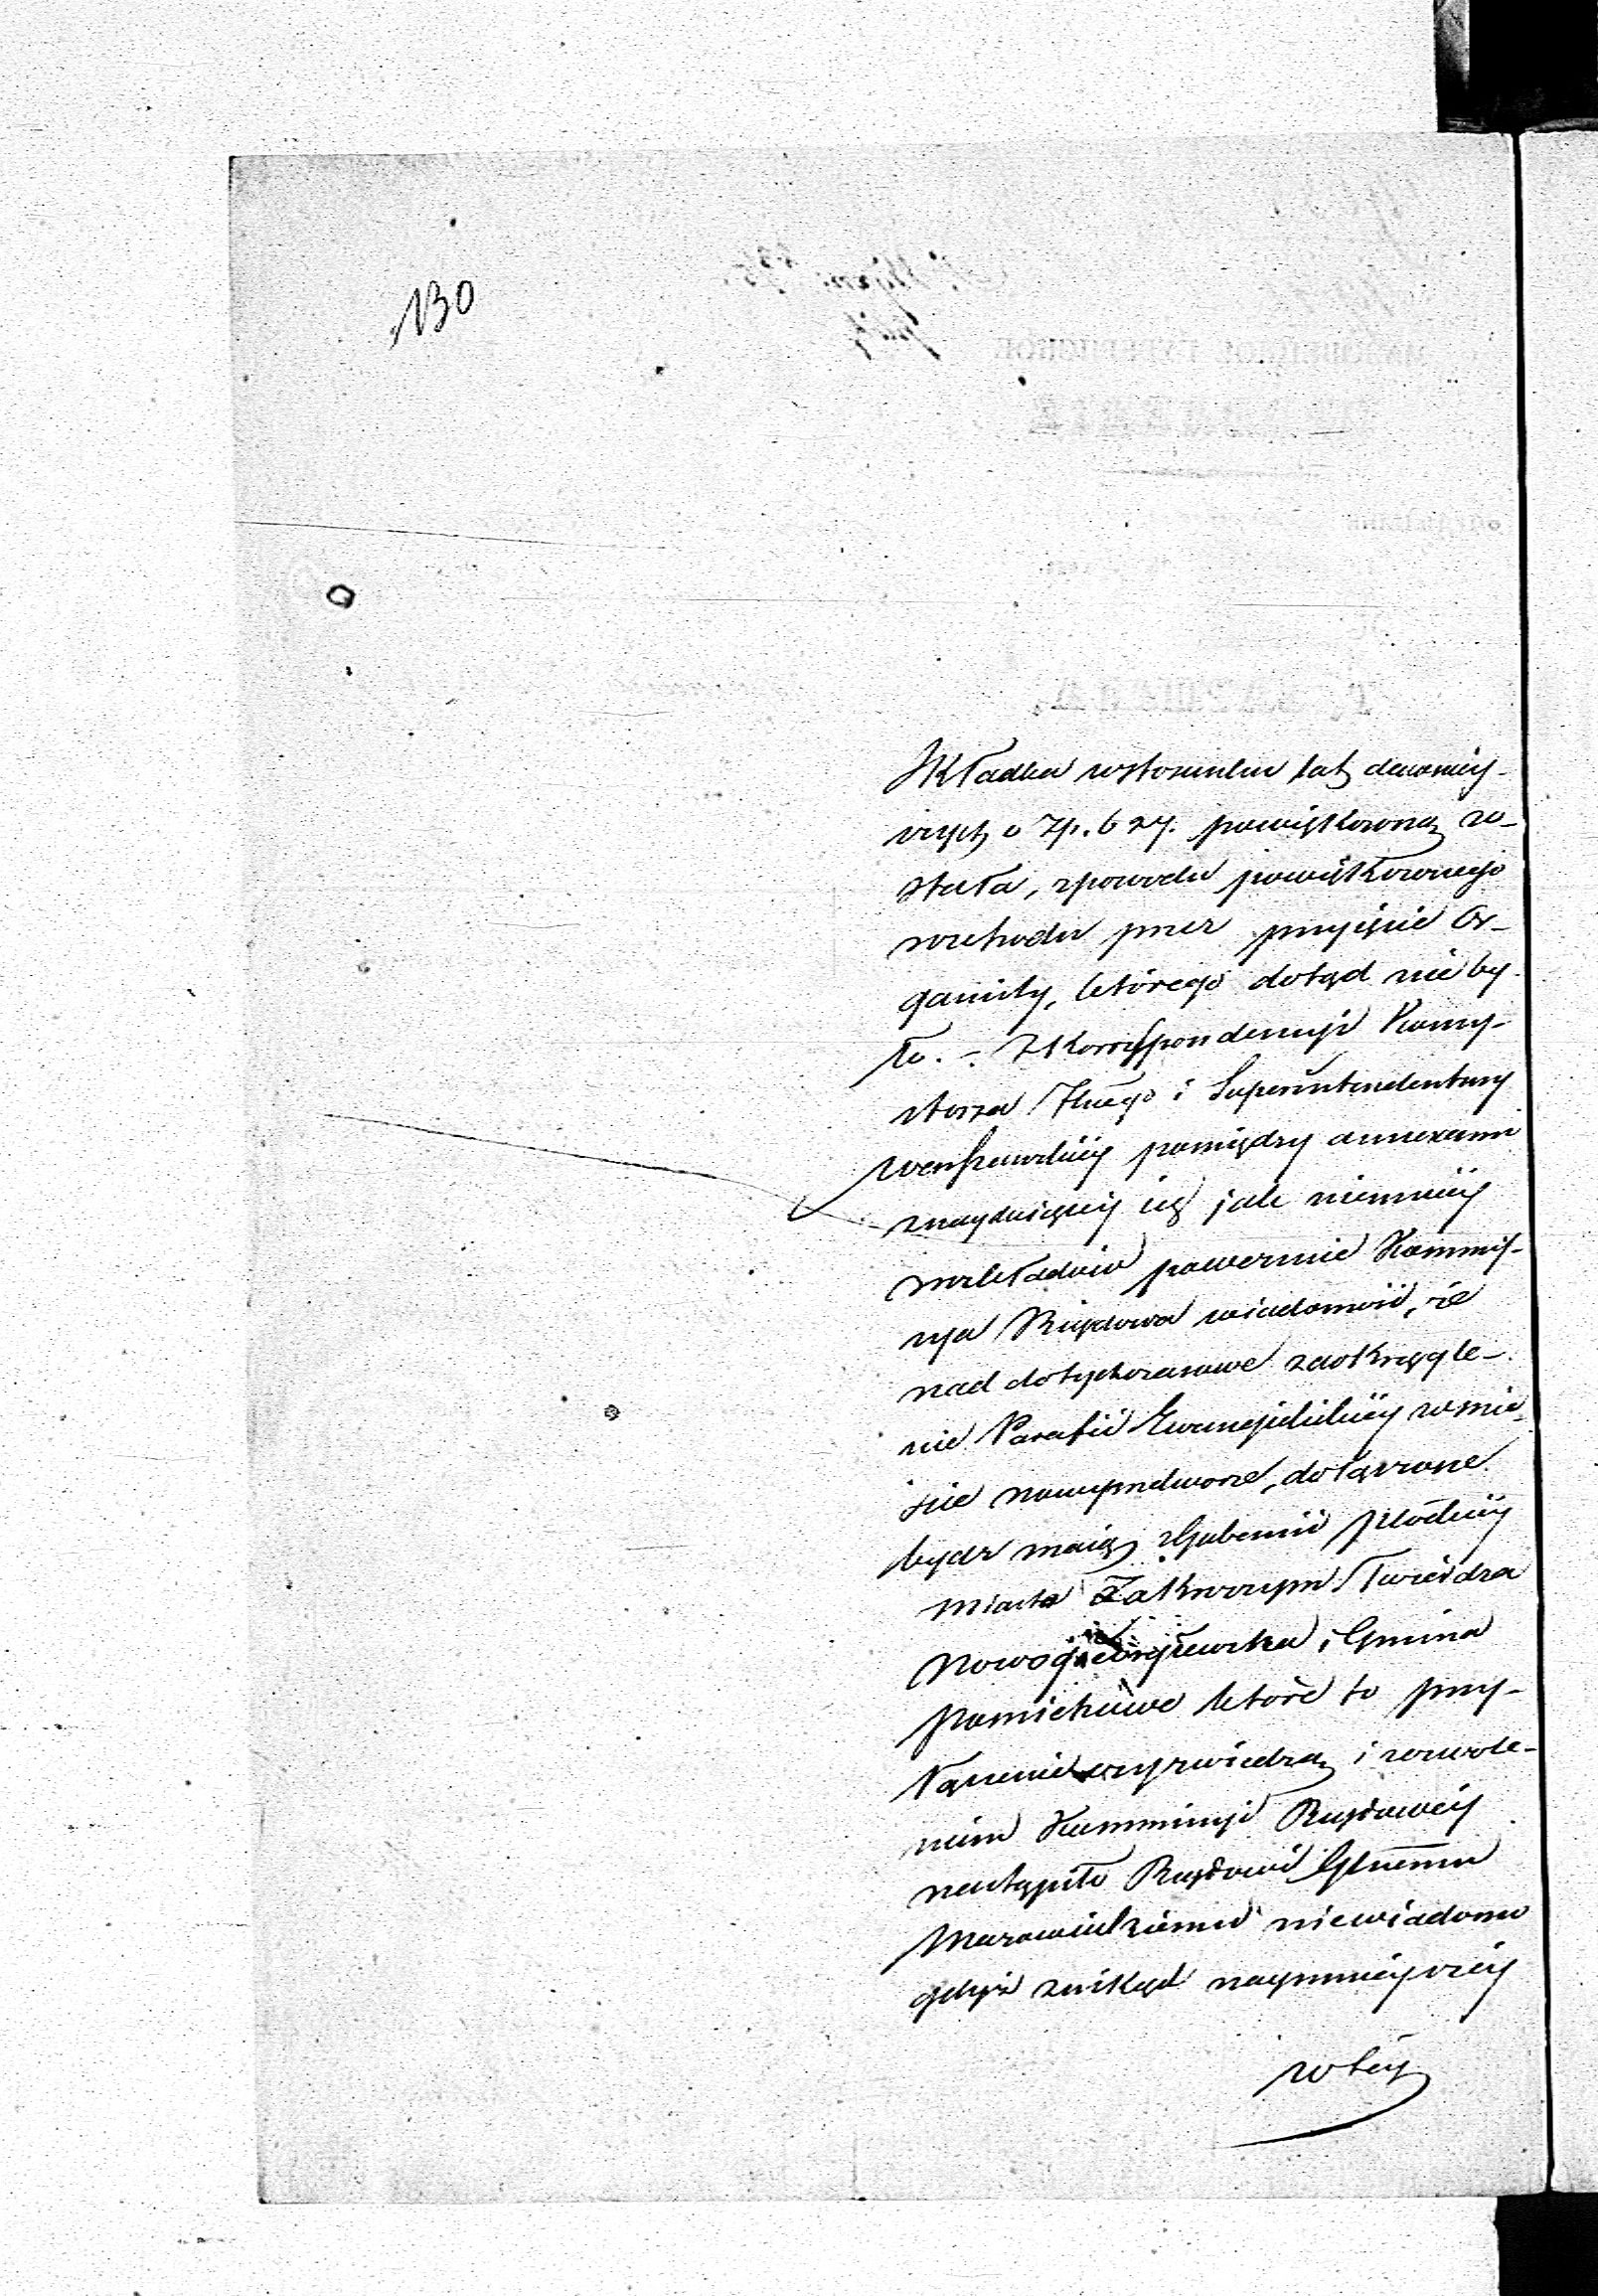 130
Składka wstosunku lat dawniej-
szych o Zp. 627. powiększoną zo-
stała, zpowodu powiększonego
rozchodu przez przyjęcie Or-
ganisty, którego dotąd nie by-
ło. – Zkorrespondencyi Konsy-
storza Jlnego i Superintendentury
warszawskiej pomiędzy annexami
znayduiącey się jako niemniey
rozkładów poweźmie Kommis-
sya Rządowa wiadomość, że
nad dotychczasowe zaokrągle-
nie Parafii Ewangielickiey w mie-
ście nowymdworze, dołączone
bydź maią z Gubernii Płockiey
miasto Zakroczym Twierdza
Nowogieorgiewska i Gmina
Pomiechowo które to przy-
łączenie czy zwiedzą i zezwole-
niem Kommissyi Rządowey
nastąpiło Rządowi Gluemu
Mazowieckiemu niewiadomo
gdyż znikąd naymnieyszey
w tey